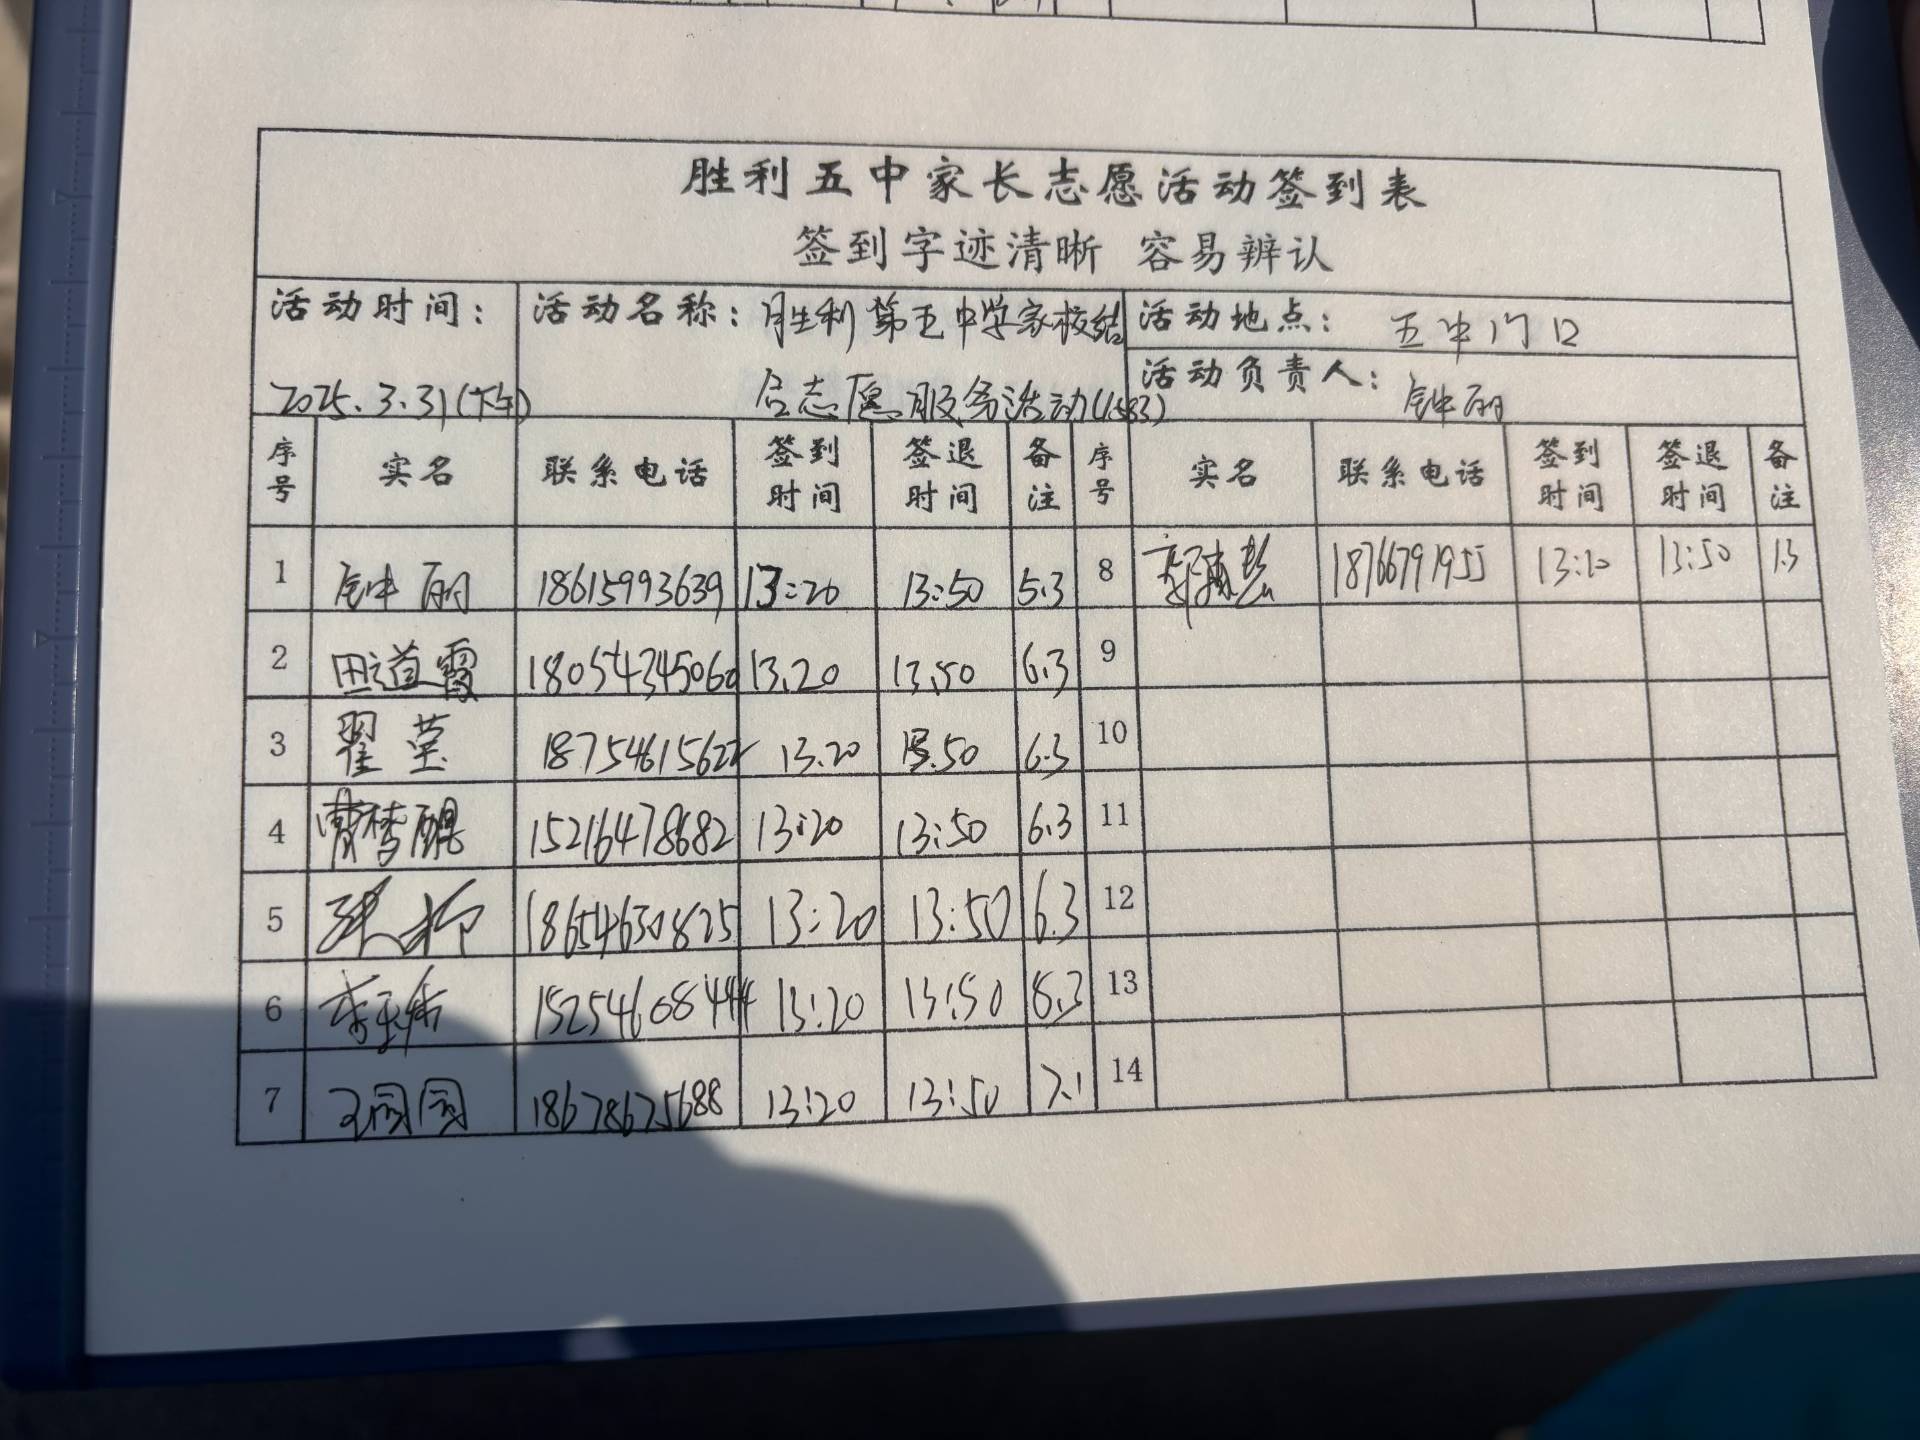 胜利五中家长志愿活动签到表
签到字迹清晰 容易辨认
活动时间：
2025.3.31(下午)
活动名称：胜利第五中学家校结
合志愿服务活动(1583)
活动地点： 五中门口
活动负责人： 钟丽
序号 实名 联系电话 签到时间 签退时间 备注 序号 实名 联系电话 签到时间 签退时间 备注
1 钟丽 18615993639 13:20 13:50 5.3 8 18766791955 13:20 13:50 1.3
2 田道霞 18054345060 13.20 13.50 6.3 9
3 翟莹 18754615622 13.20 13.50 6.3 10
4 曹梦醒 15216478682 13:20 13:50 6.3 11
5 18654630825 13:20 13:50 6.3 12
6 15254608444 13:20 13:50 8.3 13
7 王园园 18678675688 13:20 13:50 7.1 14